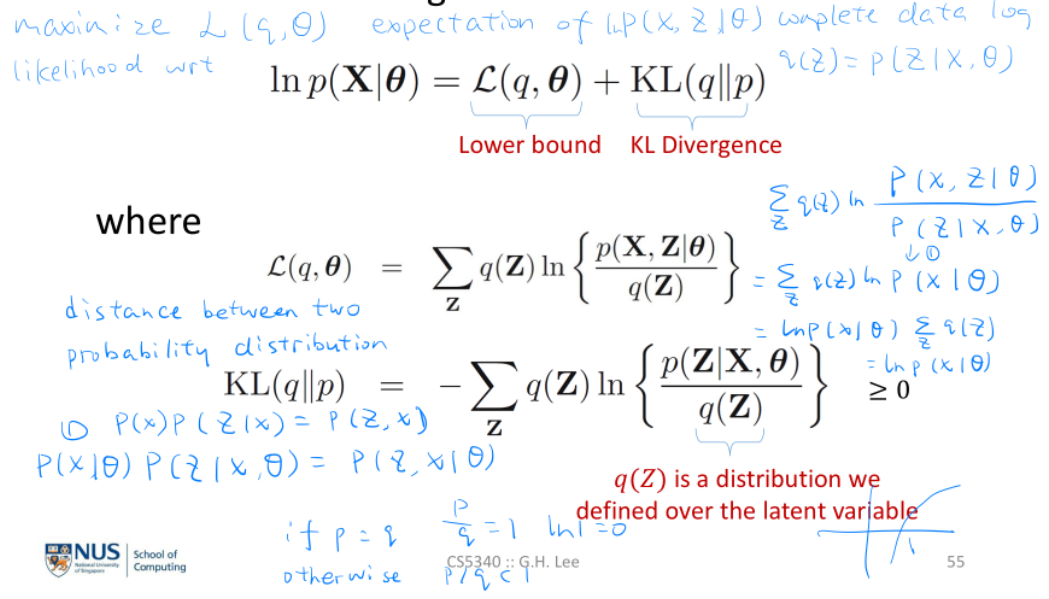 maximize L(q,θ) expectation of lnP(X,Z|θ) complete data log
likelihood wrt q(Z)=p(Z|X,θ)
ln p(X|θ) = ℒ(q,θ) + KL(q||p)
Lower bound KL Divergence
where
ℒ(q,θ) = ∑_Z q(Z) ln { p(X,Z|θ) / q(Z) }
∑_Z q(Z) ln P(X,Z|θ) / P(Z|X,θ)
↓①
= ∑_Z q(Z) ln P(X|θ)
= lnP(X|θ) ∑_Z q(Z)
= ln p(X|θ)
distance between two
probability distribution
KL(q||p) = − ∑_Z q(Z) ln { p(Z|X,θ) / q(Z) } ≥ 0
① P(x)P(Z|x) = P(Z,x)
P(X|θ)P(Z|X,θ) = P(Z,X|θ)
q(Z) is a distribution we
defined over the latent variable
if p = q p/q = 1 ln1=0
otherwise p/q < 1
1
NUS
National University
of Singapore
School of
Computing
CS5340 :: G.H. Lee
55